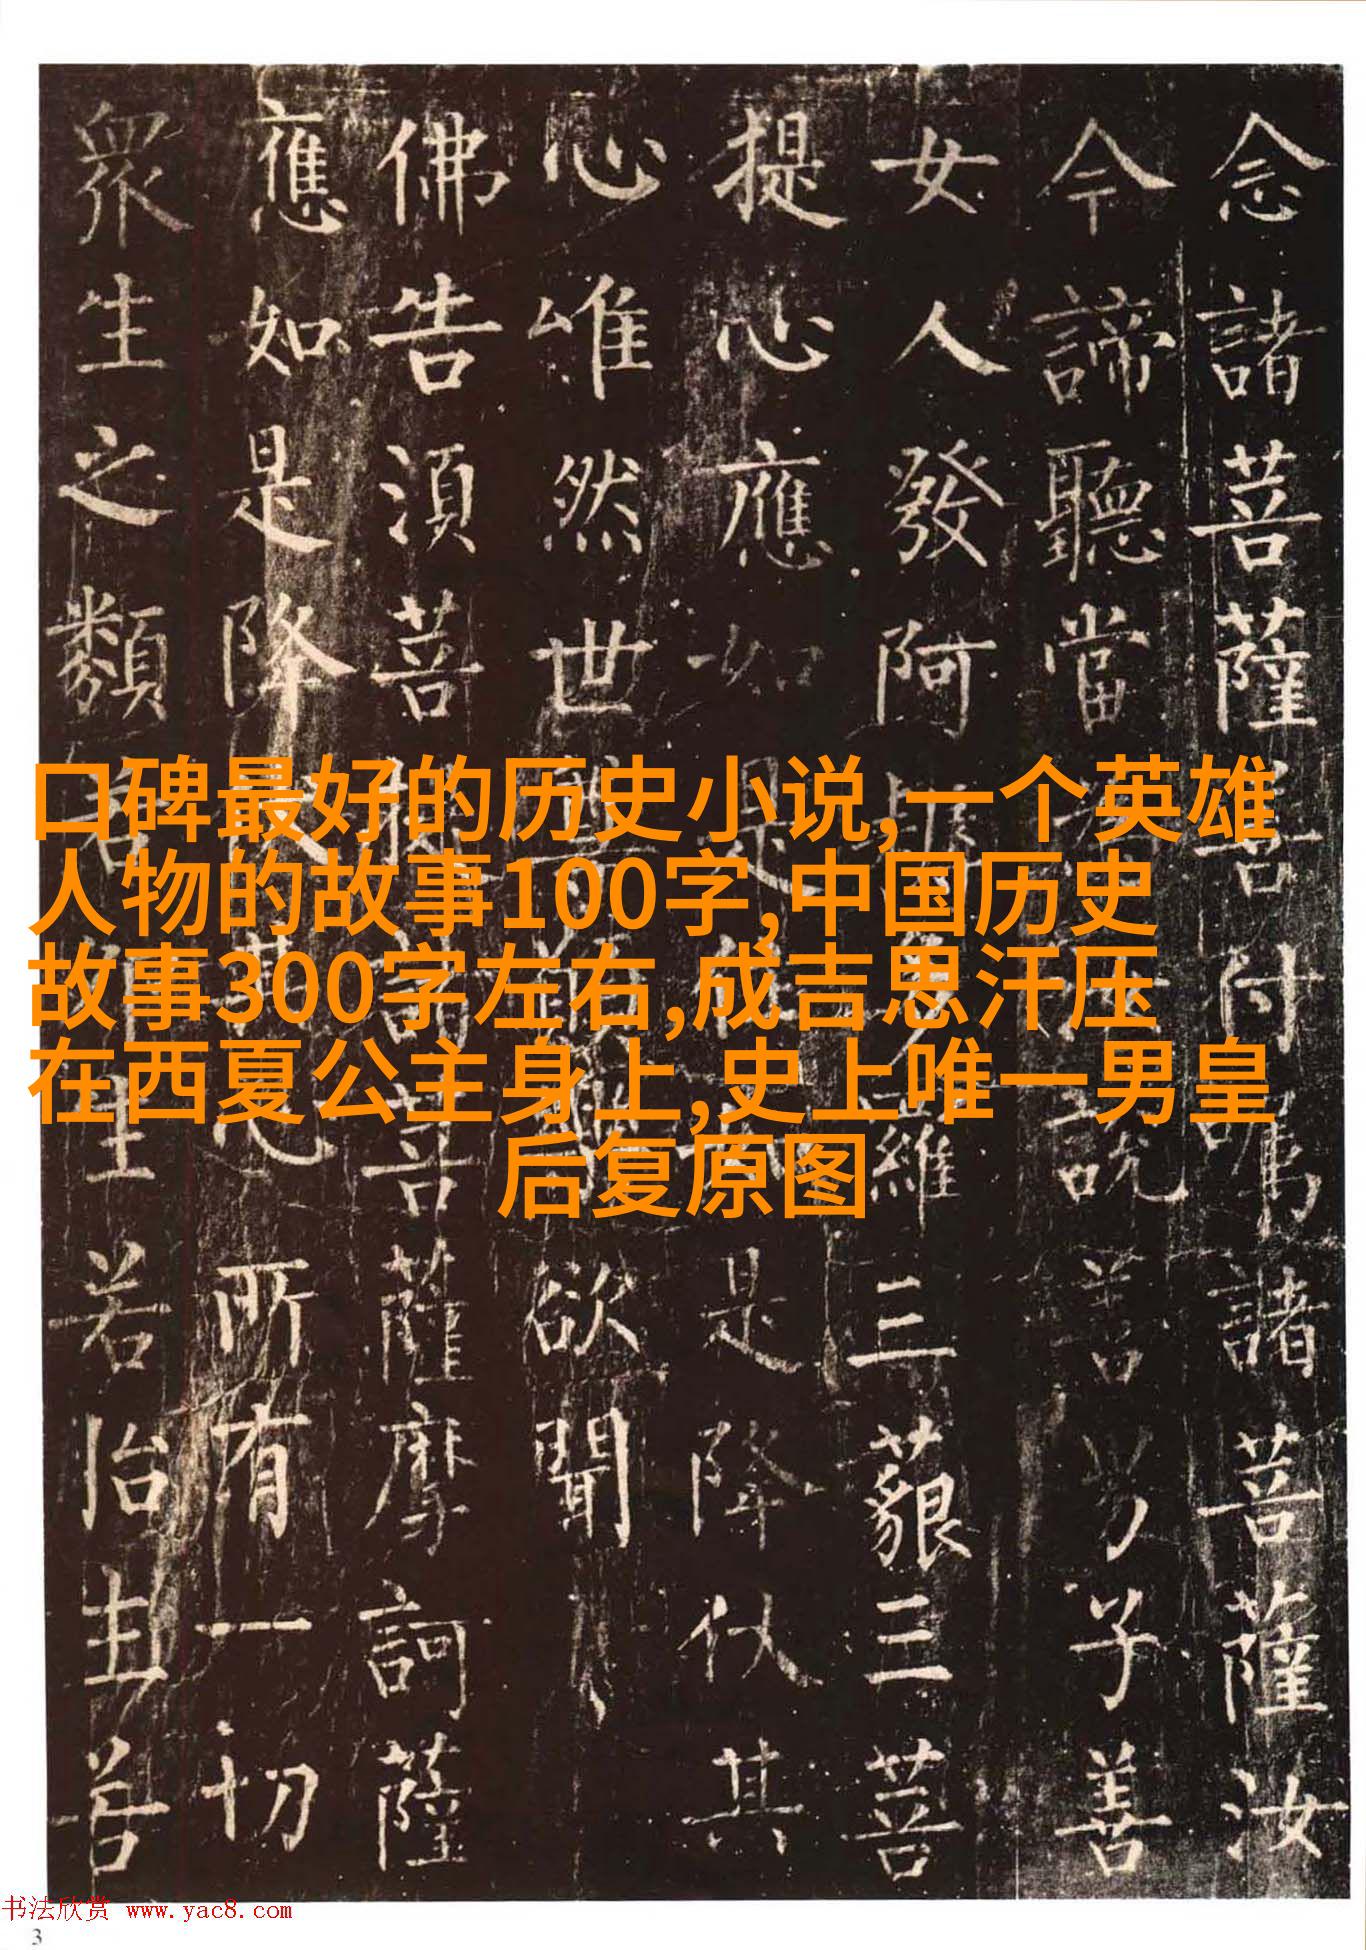 念諸菩薩善付囑諸菩薩汝
今諦聽當說善男子善
女人發阿羅三藐三菩
提心應如是是降伏其
心唯然世欲聞
佛告須菩菩薩摩訶薩
應如是降心所有一切
眾生之類生若胎生若
口碑最好的历史小说,一个英雄
人物的故事100字,中国历史
故事300字左右,成吉思汗压
在西夏公主身上,史上唯一男皇
后复原图
书法欣赏 www.yac8.com
3